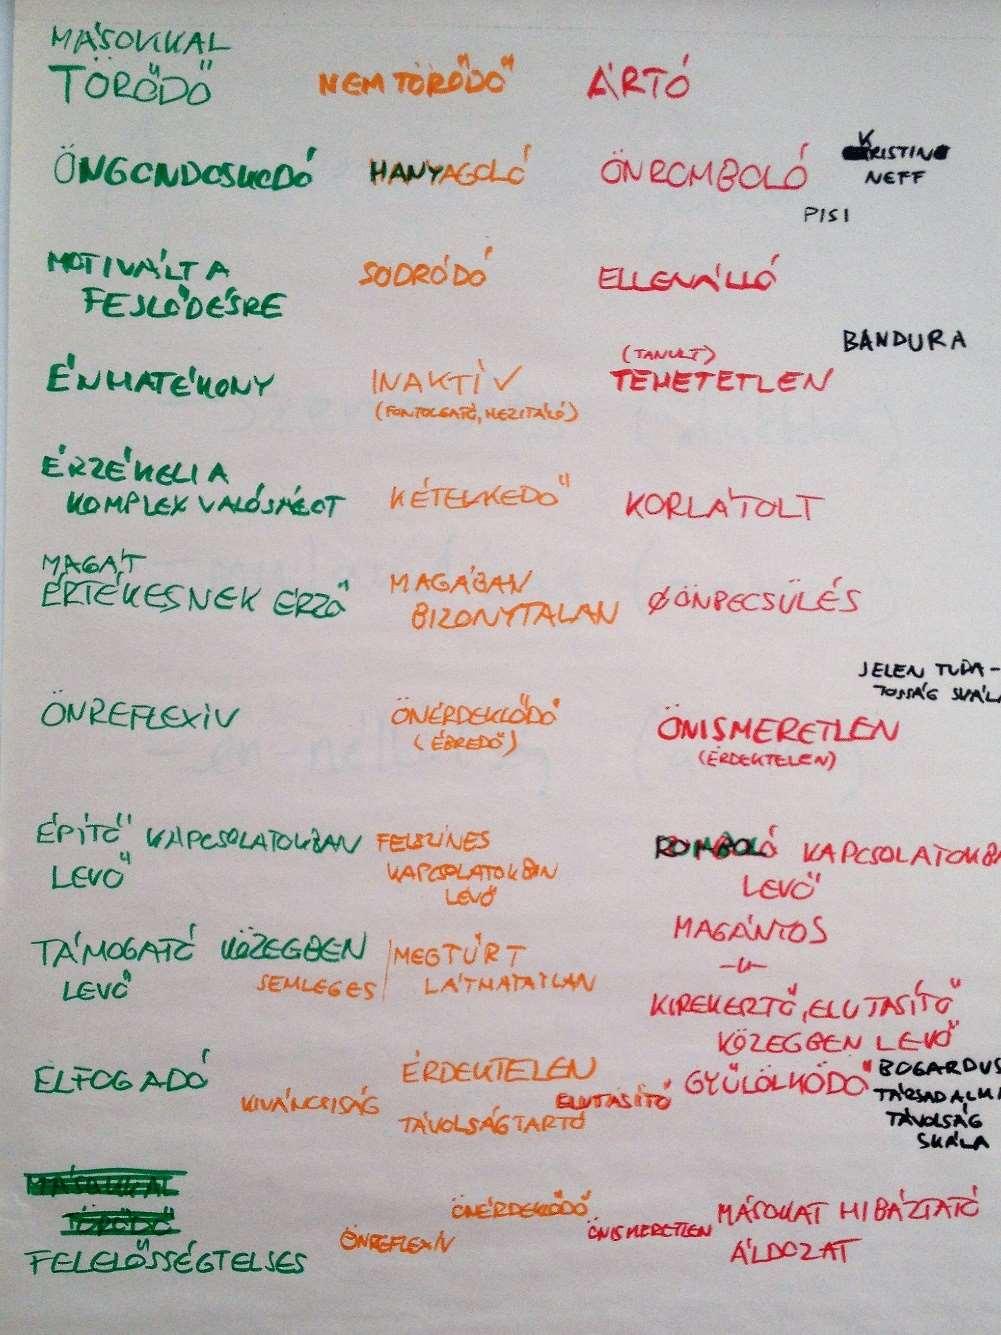 MÁSOKKAL
TÖRŐDŐ NEM TÖRŐDŐ ÁRTÓ
ÖNGONDOSKODÓ HANYAGOLÓ ÖNROMBOLÓ KRISTIN
NEFF
PISI
MOTIVÁLT A SODRÓDÓ ELLENÁLLÓ
FEJLŐDÉSRE
BANDURA
(TANULT)
ÉNHATÉKONY INAKTÍV TEHETETLEN
(FONTOLGATÓ, HEZITÁLÓ)
ÉRZÉKELI A
KOMPLEX VALÓSÁGOT KÉTELKEDŐ KORLÁTOLT
MAGÁT
ÉRTÉKESNEK ÉRZŐ MAGÁBAN ØÖNBECSÜLÉS
BIZONYTALAN
JELEN TUDA-
TOSSÁG SKÁLA
ÖNREFLEXIV ÖNÉRDEKLŐDŐ ÖNISMERETLEN
(ÉBREDŐ) (ÉRDEKTELEN)
ÉPÍTŐ KAPCSOLATOKBAN FELSZÍNES ROMBOLÓ KAPCSOLATOKBA
LEVŐ KAPCSOLATOKBAN LEVŐ
LEVŐ
MAGÁNYOS
TÁMOGATÓ KÖZEGBEN MEGTŰRT
LEVŐ SEMLEGES LÁTHATATLAN
KIREKERTŐ, ELUTASÍTÓ
KÖZEGBEN LEVŐ
ELFOGADÓ ÉRDEKTELEN GYŰLÖLKÖDŐ BOGARDUS
KIVÁNCSISÁG ELUTASÍTÓ TÁRSADALMI
TÁVOLSÁGTARTÓ TÁVOLSÁG
SKÁLA
MÁSOKKAL
TÖRŐDŐ ÖNÉRDEKLŐDŐ MÁSOKAT HIBÁZTATÓ
FELELŐSSÉGTELSES ÖNREFLEXIV ÖNISMERETLEN ÁLDOZAT